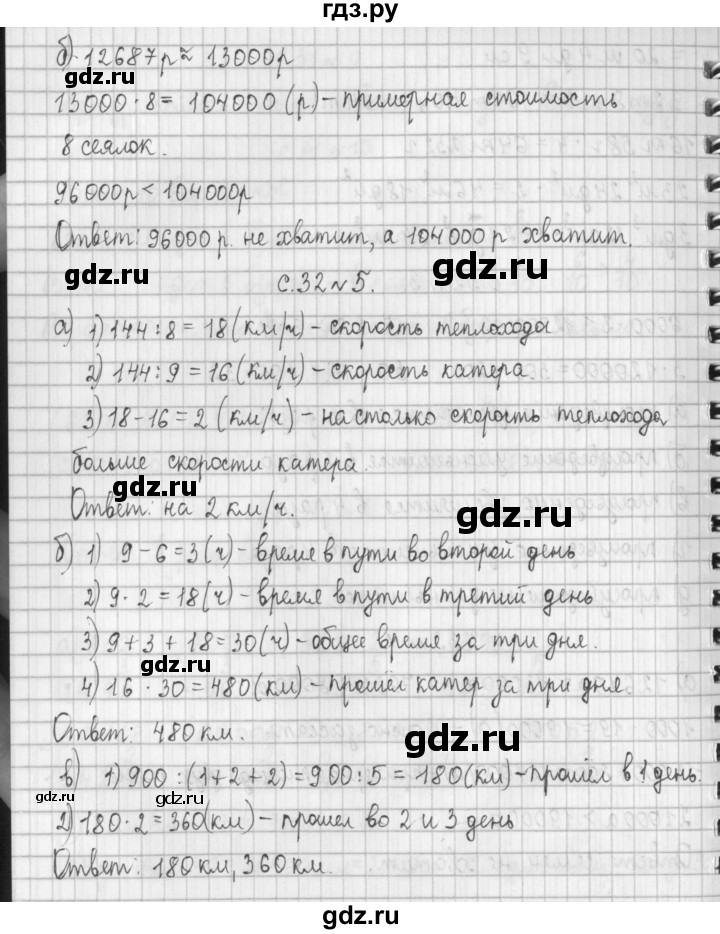 гдз.ру
б) 12687р ≈ 13000р
gdz.ru
gdz.ru
13000 · 8 = 104000 (р) – примерная стоимость
8 сеялок.
96000р < 104000р
Ответ: 96000 р. не хватит, а 104000 р хватит.
gdz.ru
gdz.ru
с.32 №5.
а) 1) 144 : 8 = 18 (км/ч) – скорость теплохода
2) 144 : 9 = 16 (км/ч) – скорость катера
3) 18 – 16 = 2 (км/ч) – на столько скорость теплохода
больше скорости катера.
gdz.ru
Ответ: на 2 км/ч.
gdz.ru
б) 1) 9 – 6 = 3 (ч) – время в пути во второй день
2) 9 · 2 = 18 (ч) – время в пути в третий день
3) 9 + 3 + 18 = 30 (ч) – общее время за три дня.
gdz.ru
4) 16 · 30 = 480 (км) – прошел катер за три дня.
Ответ: 480 км.
gdz.ru
в) 1) 900 : (1+2+2) = 900 : 5 = 180 (км) – прошёл в 1 день.
gdz.ru
gdz.ru
gdz.ru
2) 180 · 2 = 360 (км) – прошел во 2 и 3 день
Ответ: 180 км, 360 км.
gdz.ru